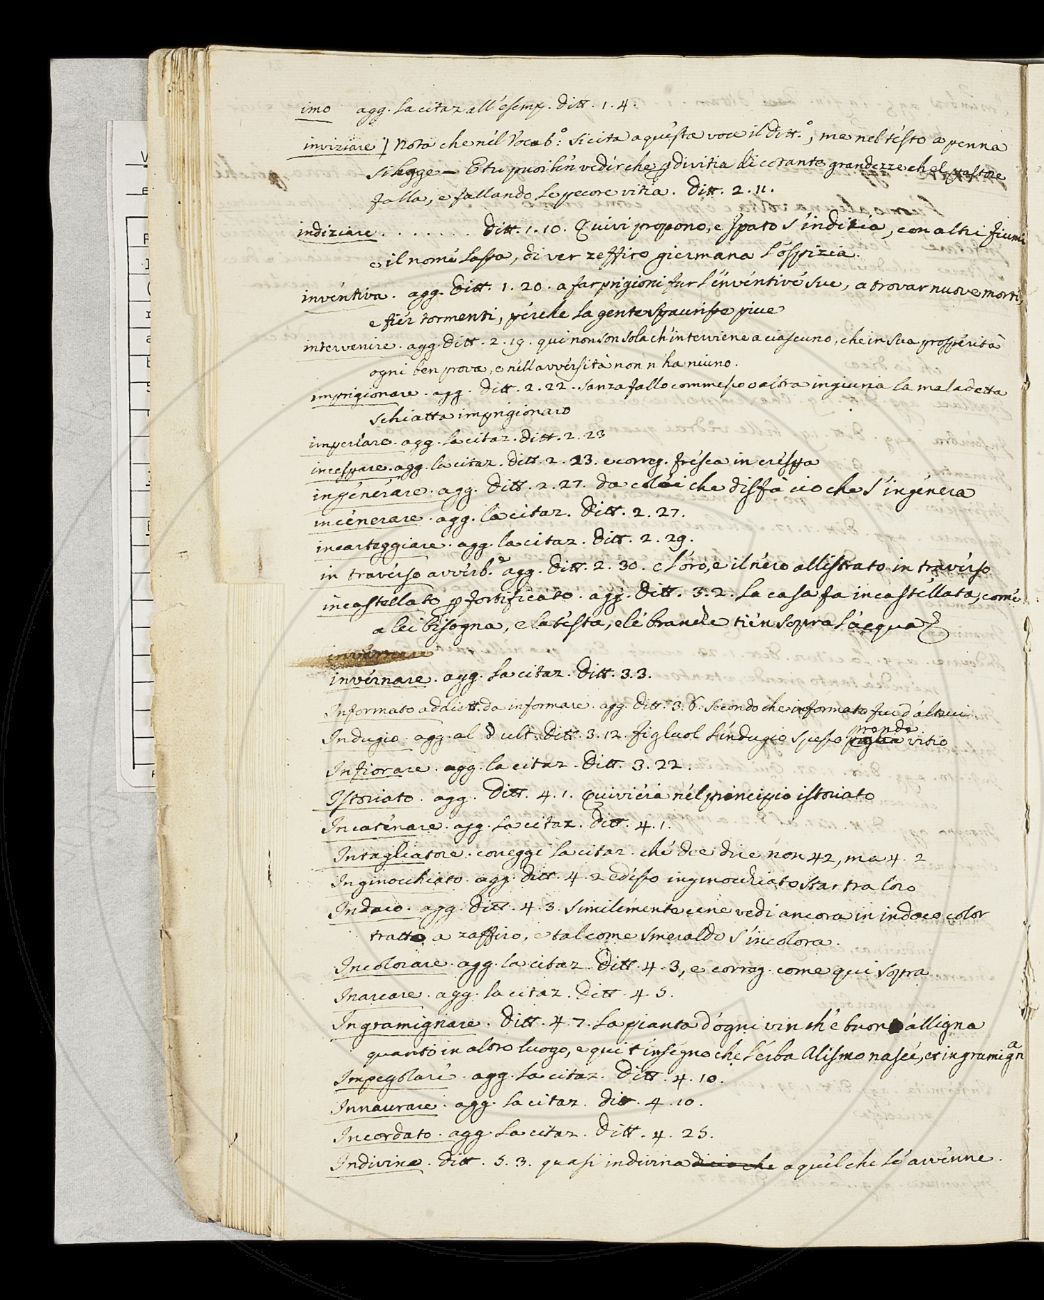 imo agg. la citaz all'esemp. Ditt. 1. 4.
inviziare } Nota che nel Vocab.º si cita a questa voce il Ditt.º, ma nel testo a penna
si legge = E tu puoi ben vedir che p divitia di cotante grandezze ch el pastore
falla, e fallando le pecore vitia. Ditt. 2. 11.
indiziare . . . . . . . Ditt. 1. 10. Quivi propono, e Spato s'inditia, con altri fiumi
e il nome Lassa, di ver zeffiro giermana l'ospizia.
inventiva. agg. Ditt. 1. 20. a far prigioni fur l'inventive sue, a trovar nuove morti,
e fier tormenti, perche la gente spaurisse piue
intervenire. agg. Ditt. 2. 19. qui non son sola ch'interviene a ciascuno, che in sua prosperità
ogni ben prova, e nell'avversità non n ha niuno.
imprigionare. agg. Ditt. 2. 22. sanza fallo commesso o altra ingiuria la maladetta
schiatta imprigionaro
imperlaro. agg. la citaz. Ditt. 2. 23
increspare. agg. la citaz. Ditt. 2. 23. e correg. frisca in crespa
ingenerare. agg. Ditt. 2. 27. da colei che disfà ciò che s'ingenera
incenerare. agg. la citaz. Ditt. 2. 27.
incarteggiare. agg. la citaz. Ditt. 2. 29.
in traverso avverb.º agg. Ditt. 2. 30. e l'oro, e il nero allistrato in traverso
incastellato p fortificato. agg. Ditt. 3. 2. La casa fa incastellata, come
a lei bisogna, e la testa, e le branche tien sopra l'acqua
invernare. agg. la citaz. Ditt. 3. 3.
Informato addiett. da informare. agg. Ditt. 3. 6. secondo che informato fui d'altrui.
Indugio. agg. al § ult. Ditt. 3. 12. figluol l'indugio spesso prende vitio
Infiorare. agg. la citaz. Ditt. 3. 22.
Istoriato. agg. Ditt. 4. 1. Quivi era nel principio istoriato
Incatenare. agg. la citaz. Ditt. 4. 1.
Intagliatore. correggi la citaz. che dee dire non 42, ma 4. 2
Inginocchiato. agg. Ditt. 4. 2 ed esso inginocchiato star tra loro
Indaco. agg. Ditt. 4. 3. similemente cene vedi ancora in indaco color
tratto, a zaffiro, e tal come smeraldo s'incolora.
Incolorare. agg. la citaz Ditt. 4. 3, e correg. come qui sopra
Inarcare. agg. la citaz. Ditt. 4. 5.
Ingramignare. Ditt. 4. 7. La pianta d'ogni vin ch'è buon alligna
quanto in altro luogo, e qui t'insegno che l'erba Alismo nasce, et ingramigna
Impegolare. agg. la citaz. Ditt. 4. 10.
Innaurare. agg. la citaz. Ditt. 4. 10.
Incordato. agg. la citaz. Ditt. 4. 25.
Indivina. Ditt. 5. 3. quasi indivina a quel che l'è avvenne.